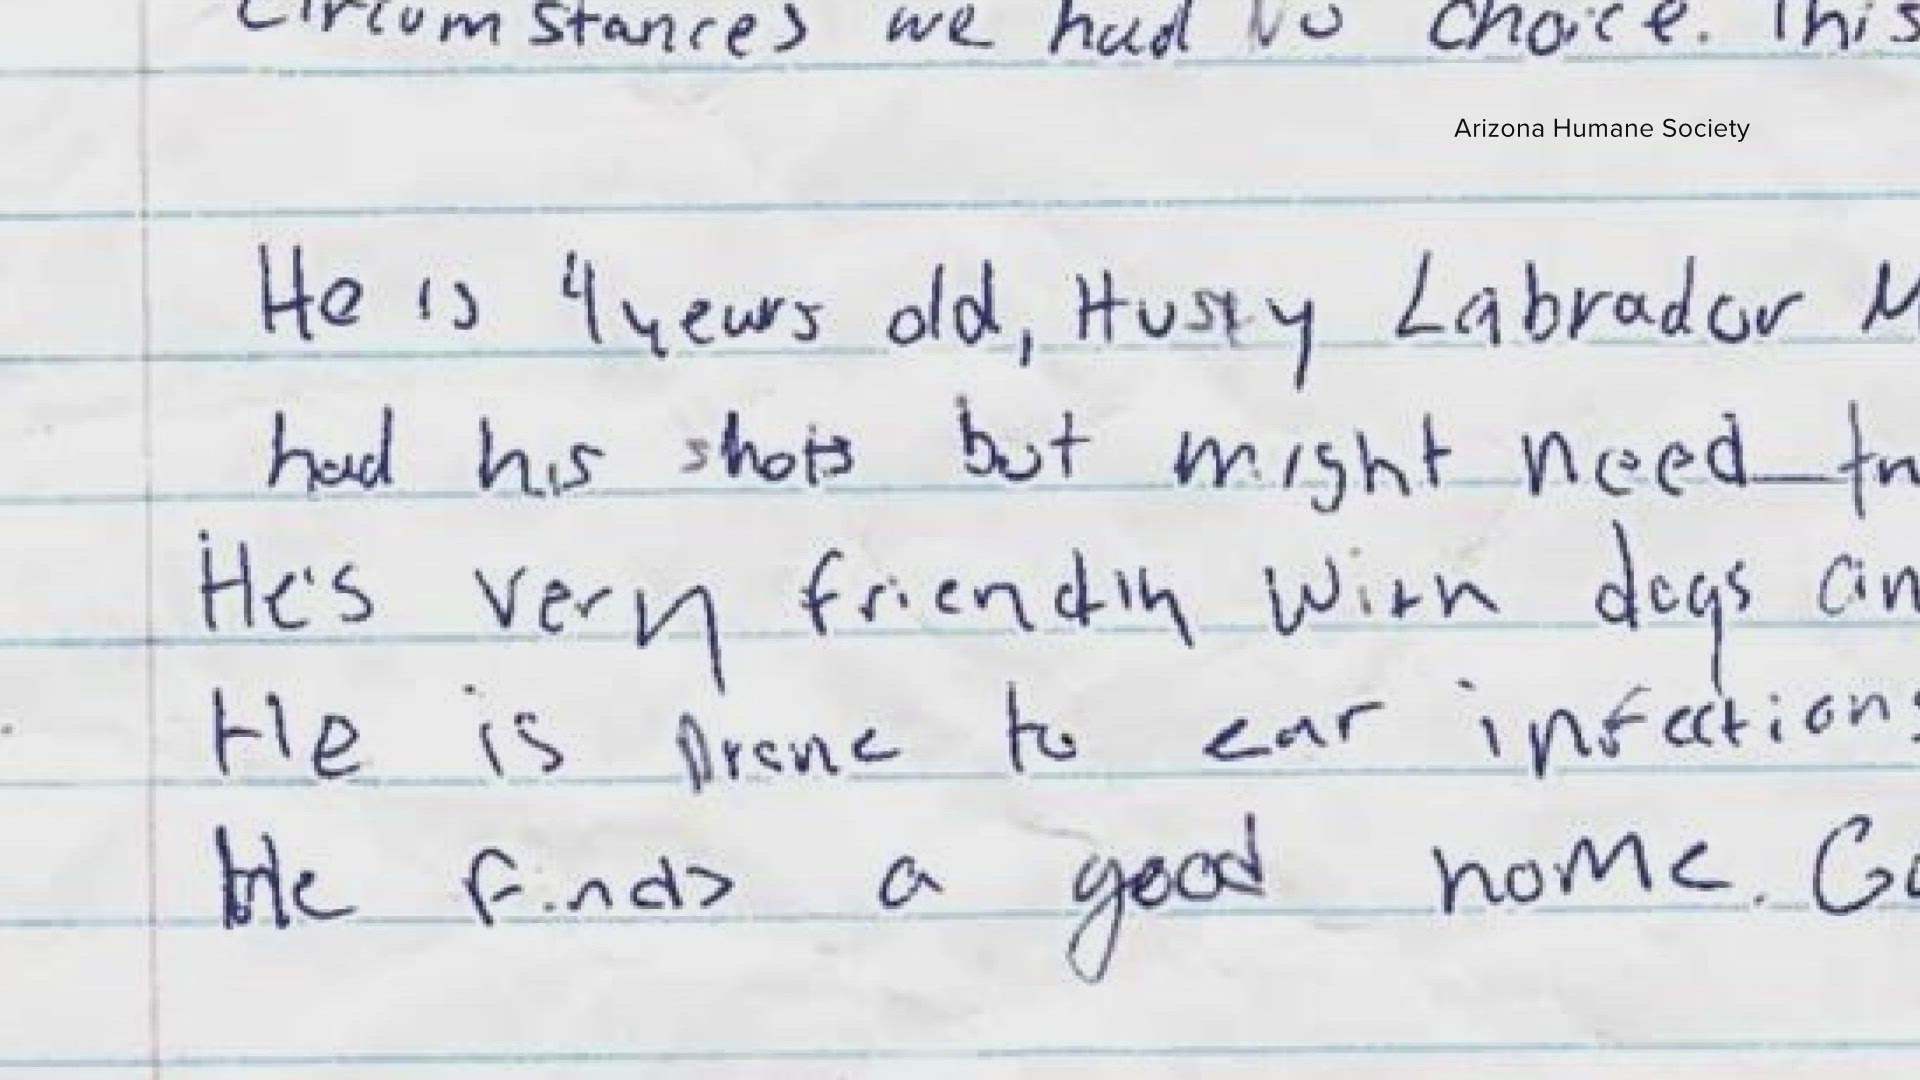 circumstances we had no choice. This
Arizona Humane Society
He is 4 years old, Husky Labrador M
had his shots but might need
He's very friendly with dogs an
He is prone to ear infections
He finds a good home. Go